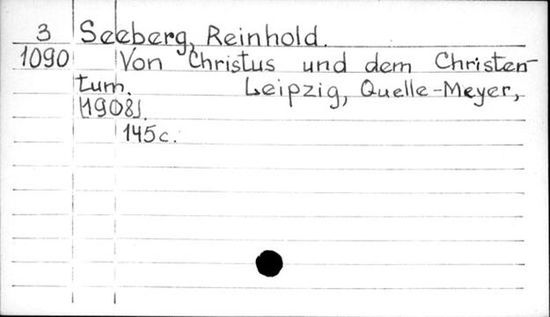 3 Seeberg, Reinhold.
1090 Von Christus und dem Christen-
tum. Leipzig, Quelle-Meyer,
[1908].
145c.